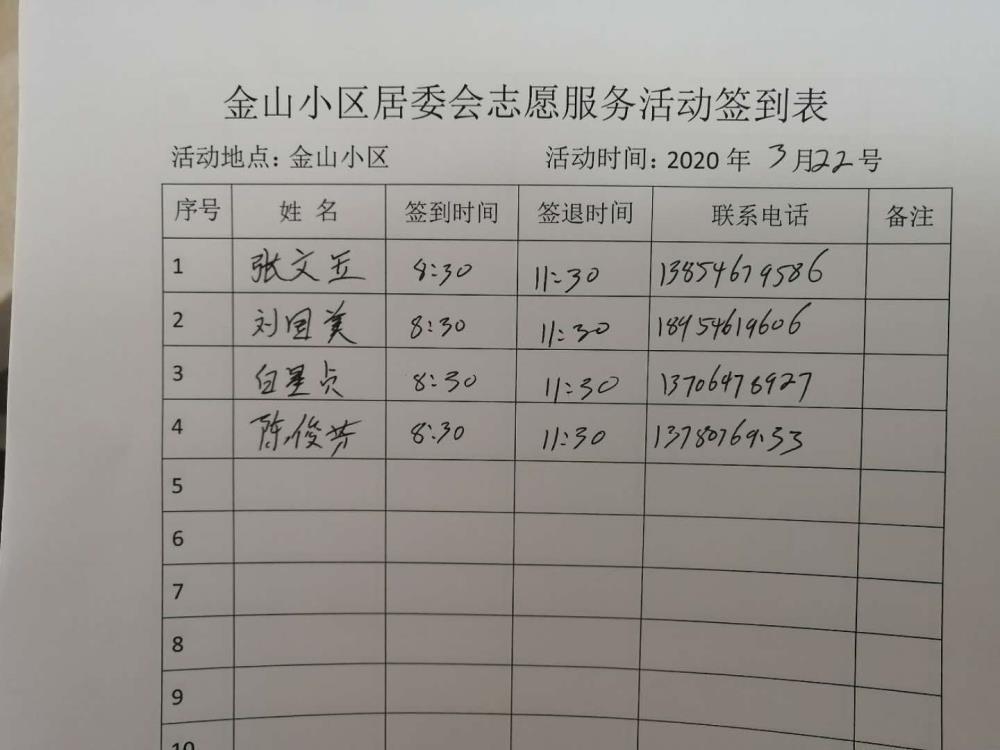 金山小区居委会志愿服务活动签到表
活动地点：金山小区 活动时间：2020 年 3月22号
序号 姓 名 签到时间 签退时间 联系电话 备注
1 张文玉 8:30 11:30 13854679586
2 刘国美 8:30 11:30 18954619606
3 白星贞 8:30 11:30 13706478927
4 陈俊芳 8:30 11:30
5
6
7
8
9
10